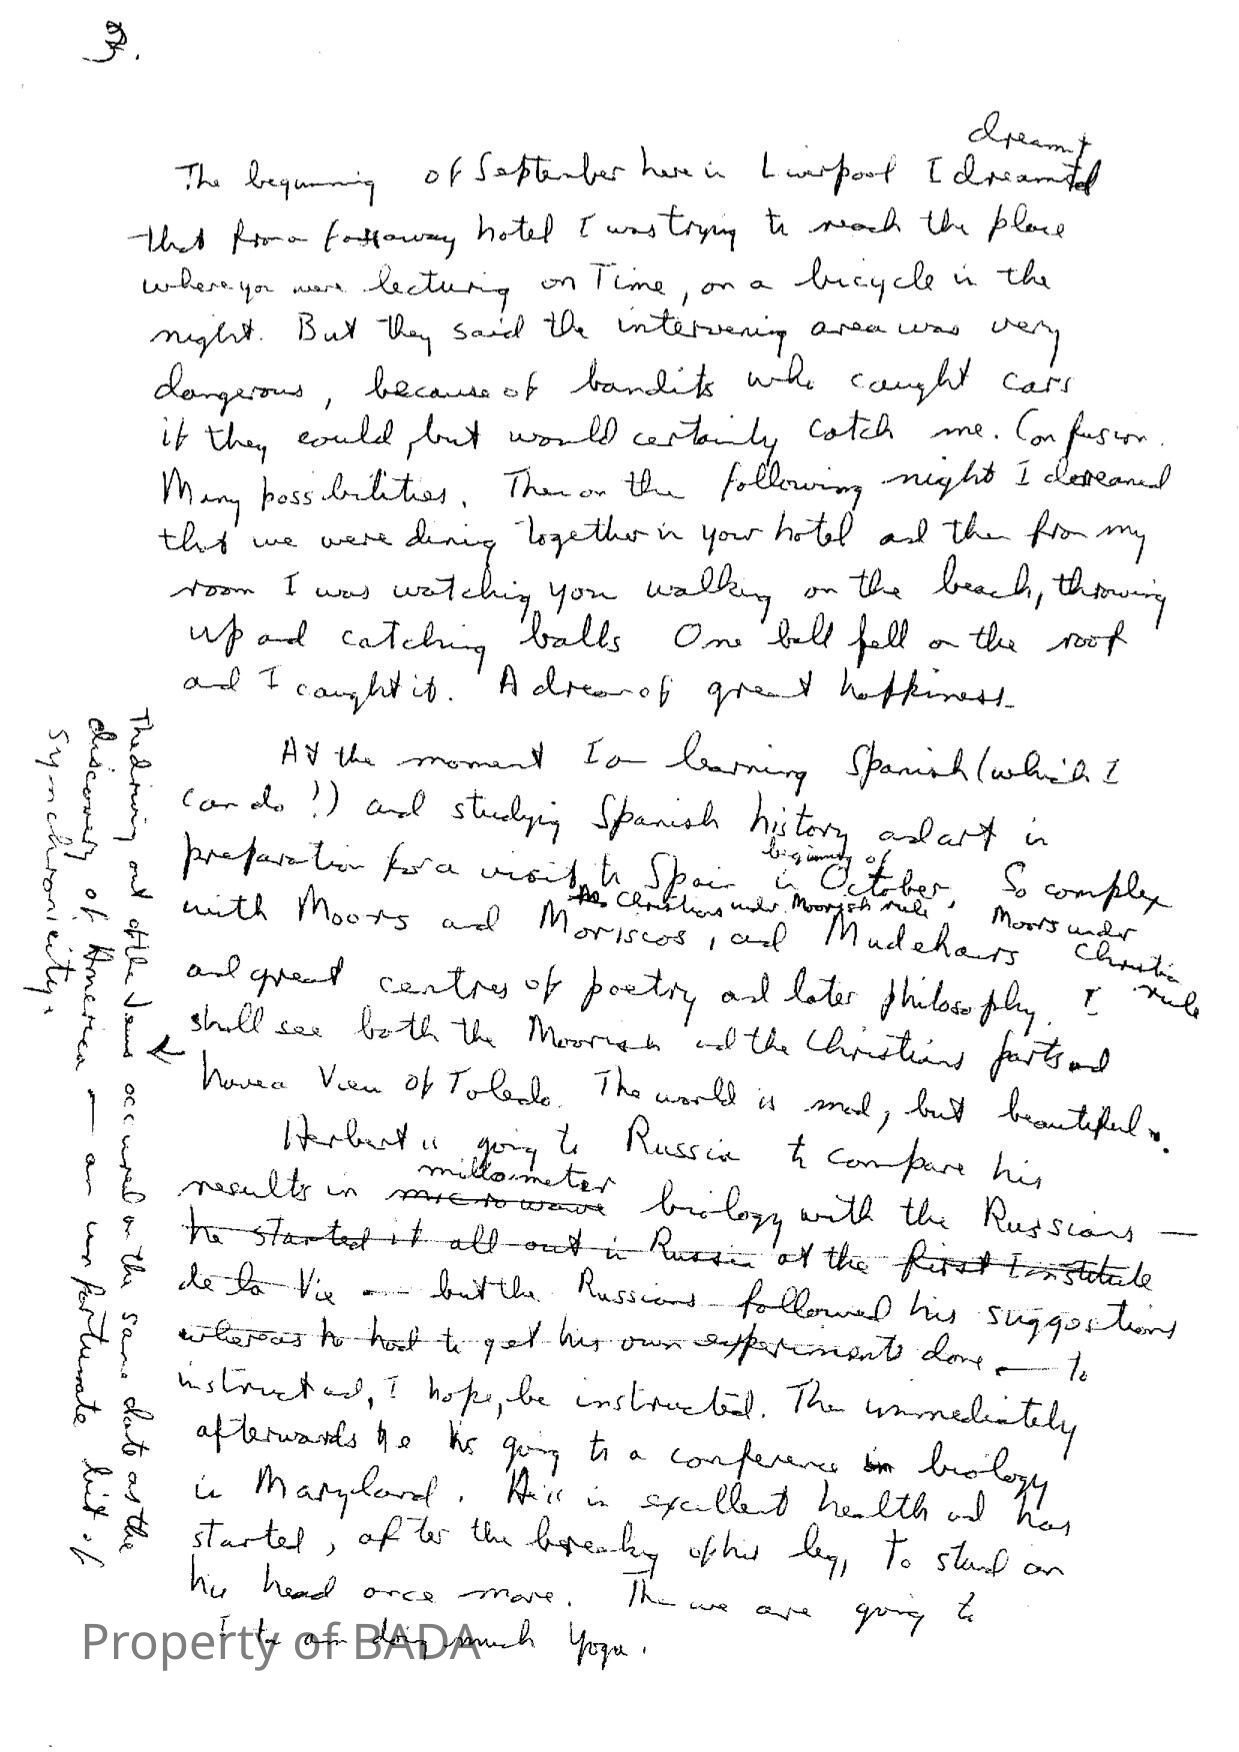 2.
dreamt
The beginning of September here in Liverpool I dreamted
that from a farraway hotel I was trying to reach the place
where you were lecturing on Time, on a bicycle in the
night. But they said the intervening area was very
dangerous, because of bandits who caught cars
if they could, but would certainly catch me. Confusion.
Many possibilities. Then on the following night I dereamed
that we were dining together in your hotel and then from my
room I was watching you walking on the beach, throwing
up and catching balls One ball fell on the roof
and I caught it. A dream of great happiness.
At the moment I am learning Spanish (which I
can do!) and studying Spanish history and art in
preparation for a visit to Spain in beginning of October. So complex
with Moors and Moriscos, and Mudehairs
Christians under Moorish rule
Moors under Christian rule
and great centres of poetry and later philosophy. I
shall see both the Moorish and the Christians parts and
have a View of Toledo. The world is mad, but beautiful.
Herbert is going to Russia to compare his
results in microwave millometer biology with the Russians —
he started it all out in Russia at the first Institute
de la Vie — but the Russians followed his suggestions
whereas he had to get his own experiments done — to
instruct and, I hope, be instructed. Then immediately
afterwards he is going to a conference in biology
in Maryland. He is in excellent health and has
started, after the breaking of his leg, to stand on
his head once more. The we are going to
I to am doing much Yoga.
The driving out of the Jews occured on the same date as the
discovery of America — an unfortunate bit of
synchronicity.
Property of BADA